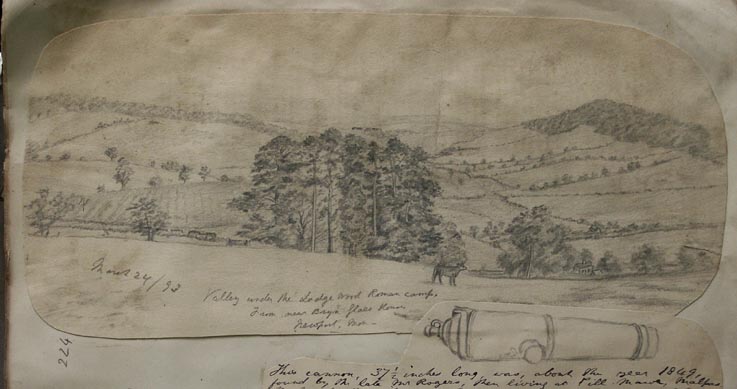 March 24/93
Valley under the Lodge wood Roman camp.
From near Bryn Glas House
Newport, Mon -
This cannon, 37½ inches long, was, about the year 1849,
found by the late Mr Rogers, then living at Pill Mawr, Malpas
224